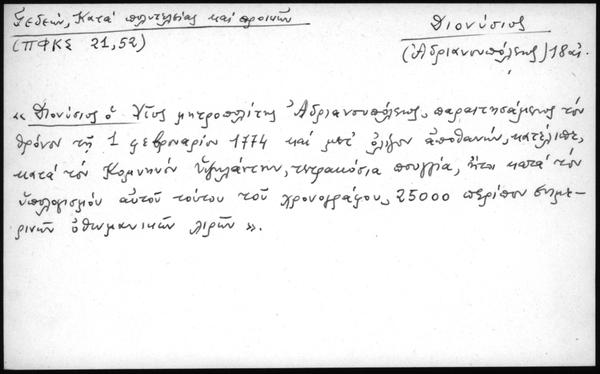 Γεδεών, Κατά πολυτελείας καί προικῶν
(ΠΦΚΣ 21,52)
Διονύσιος
(Ἀδριανουπόλεως) 18 αἰ.
« Διονύσιος ὁ Χῖος μητροπολίτης Ἀδριανουπόλεως, παραιτησάμενος τόν
θρόνον τῇ 1 φεβρουαρίου 1774 καί μετ' ὀλίγον ἀποθανών, κατέλιπε,
κατά τόν Κομνηνόν Ὑψηλάντην, τετρακόσια πουγγία, ἤτοι κατά τόν
ὑπολογισμόν αὐτοῦ τούτου τοῦ χρονογράφου, 25000 περίπου σημε-
ρινῶν ὀθωμανικῶν λιρῶν ».